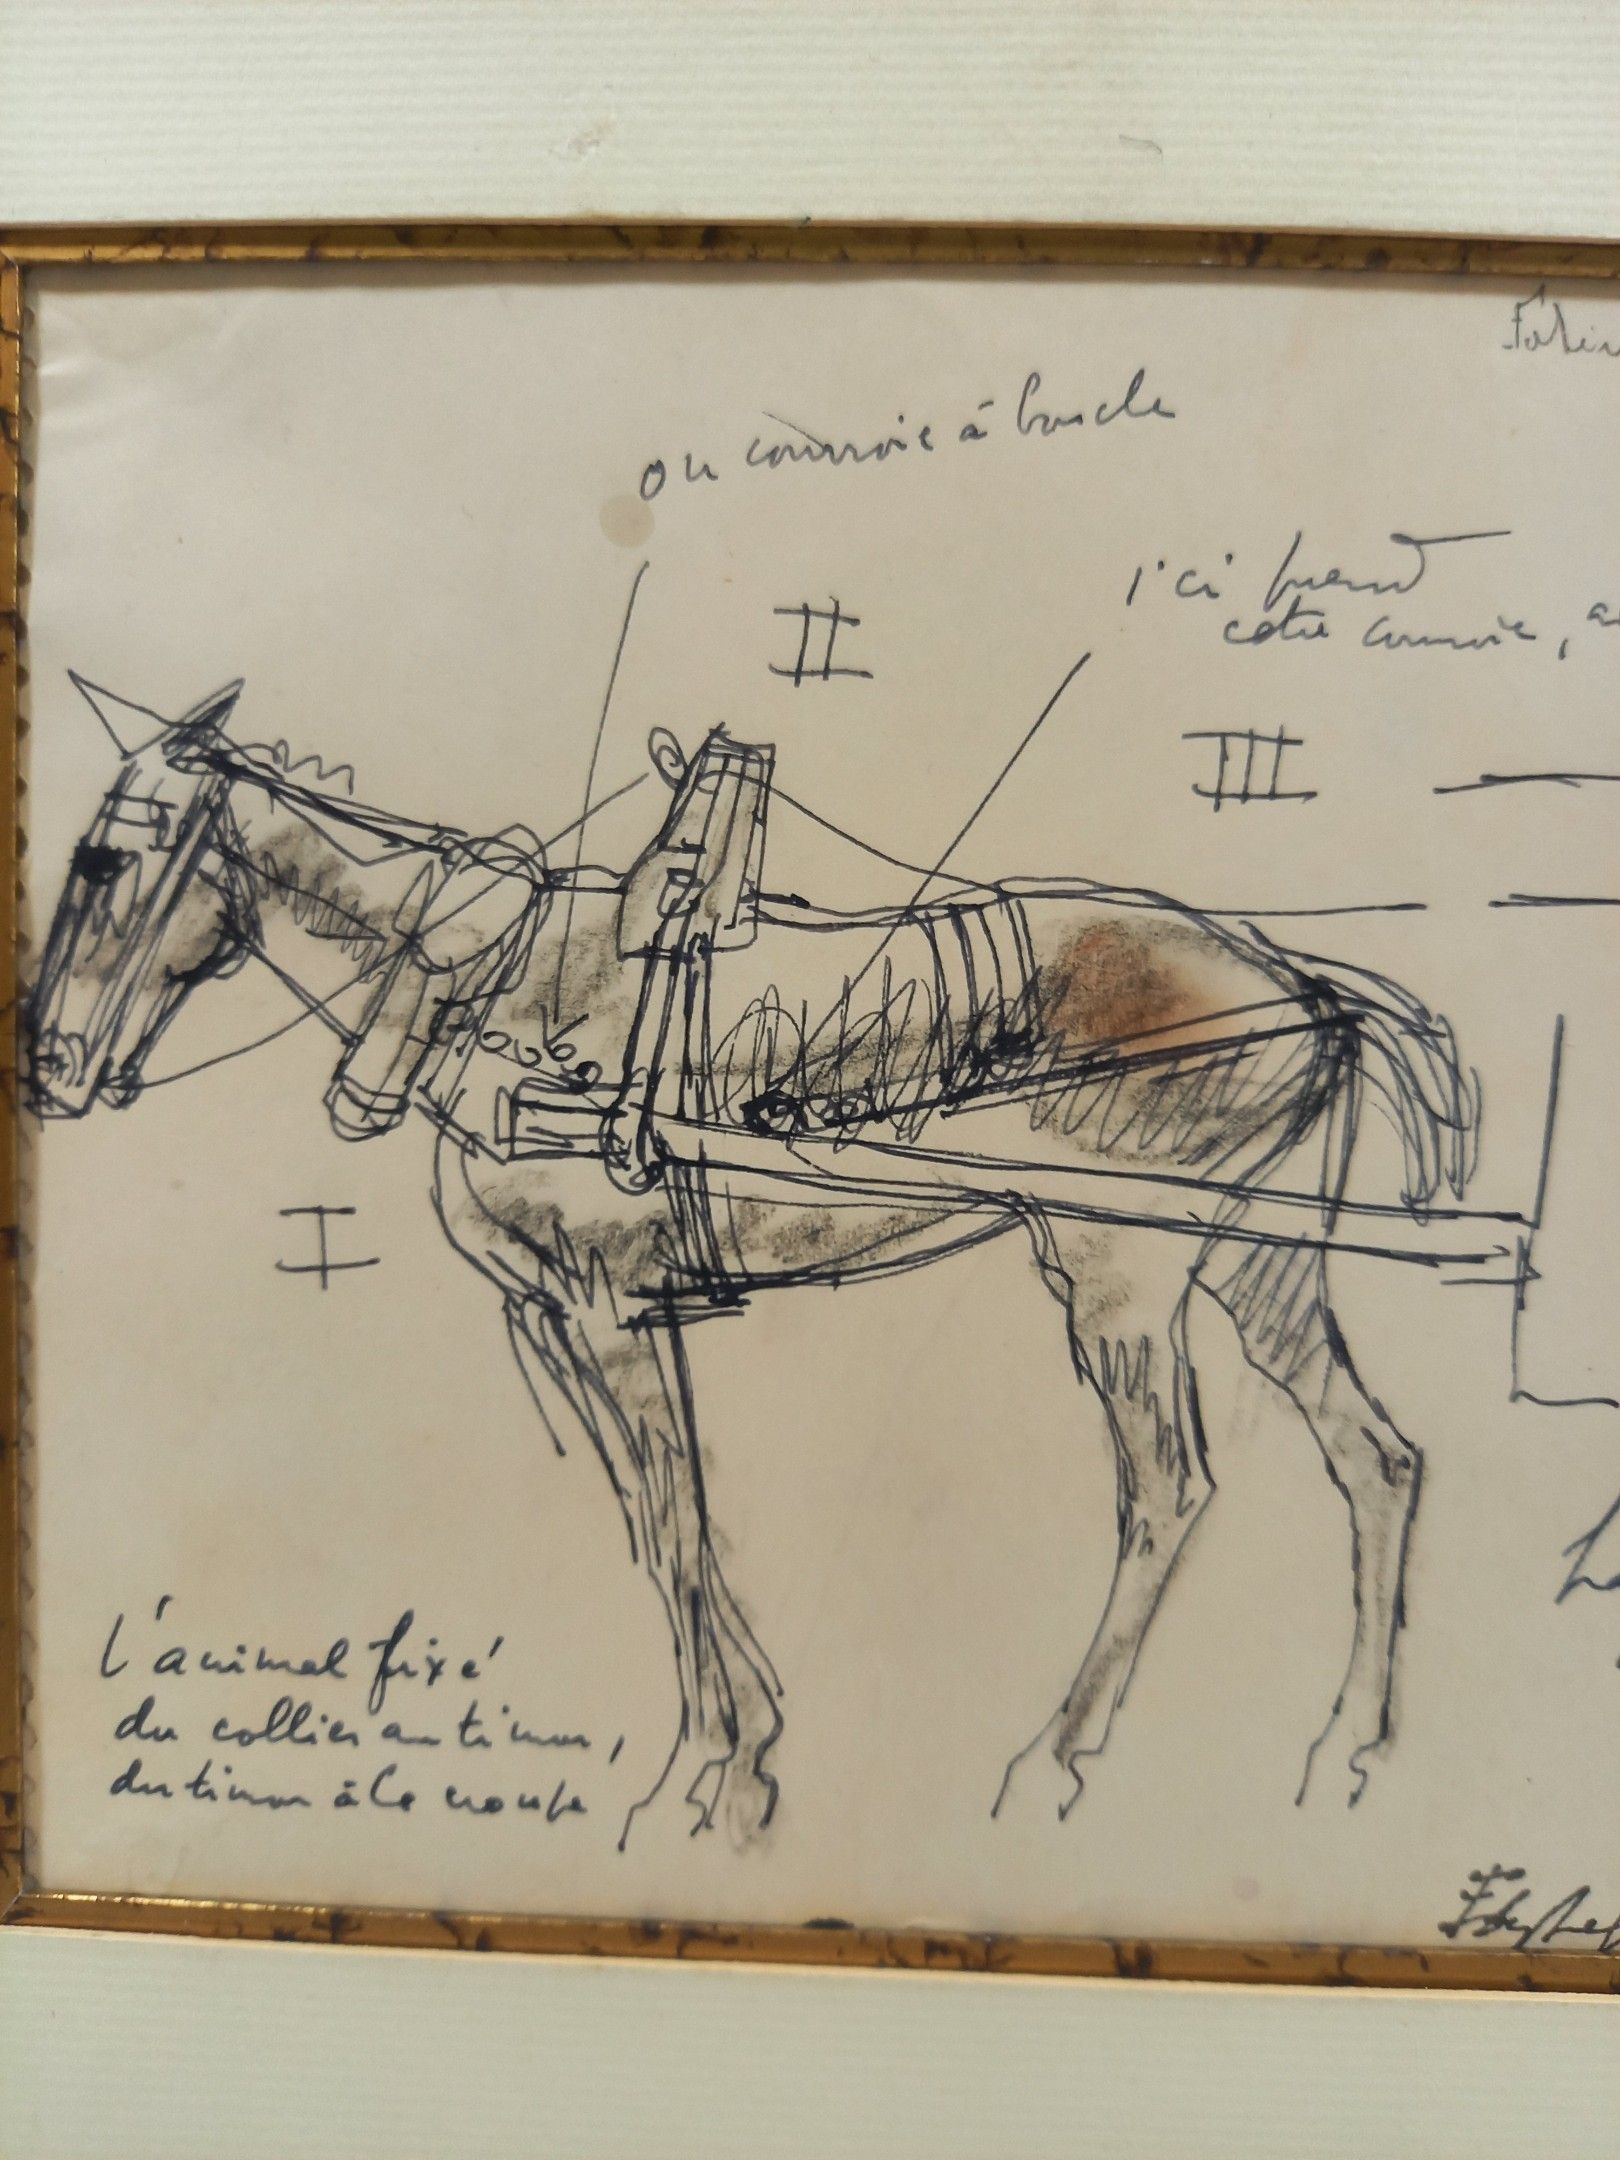 ou courroie à boucle
II
ici prend
cette courroie,
III
I
L'animal fixé
du collier au timon,
du timon à la croupe